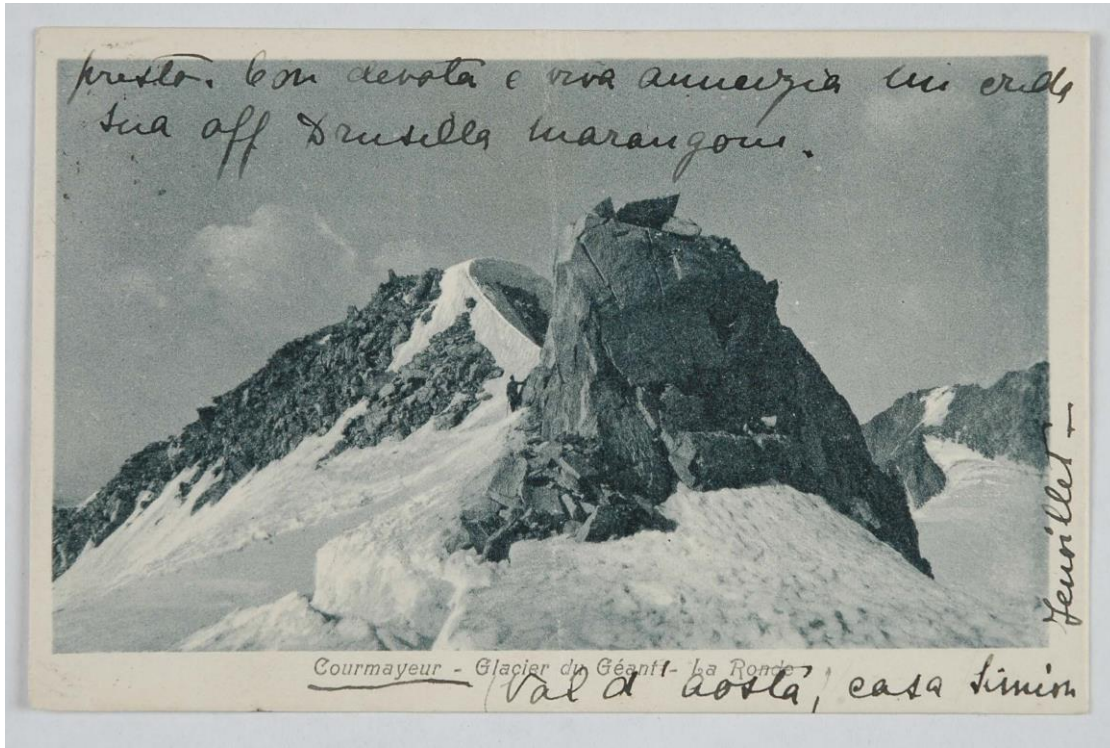 presto. Con devota e viva amicizia mi creda
sua aff Drusilla Marangoni.
Courmayeur - Glacier du Géant - La Ronde
(Val d'Aosta) casa Simion